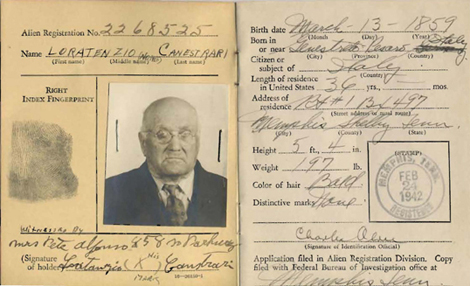 Alien Registration No. 2268525
Name LORATENZIO (NMN) CANESTRARI
(First name) (Middle name) (Last name)
RIGHT
INDEX FINGERPRINT
Witnessed By
Mrs Pete Alfonso 258 N
(Signature
of holder) (X His Mark)
Birth date March - 13 - 1859
(Month) (Day) (Year)
Born in
or near Pesaro Italy
(City) (Province) (Country)
Citizen or
subject of Italy
(Country)
Length of residence
in United States 36 yrs., mos.
Address of
residence Rt #1 Bx 497
(Street address or rural route)
Memphis Shelby Tenn
(City) (County) (State)
Height 5 ft., 4 in.
Weight 197 lb.
Color of hair Bald
Distinctive marks None
(STAMP)
MEMPHIS, TENN.
FEB
24
1942
REGISTERED
Charles
(Signature of Identification Official)
Application filed in Alien Registration Division. Copy
filed with Federal Bureau of Investigation office at
Memphis Tenn